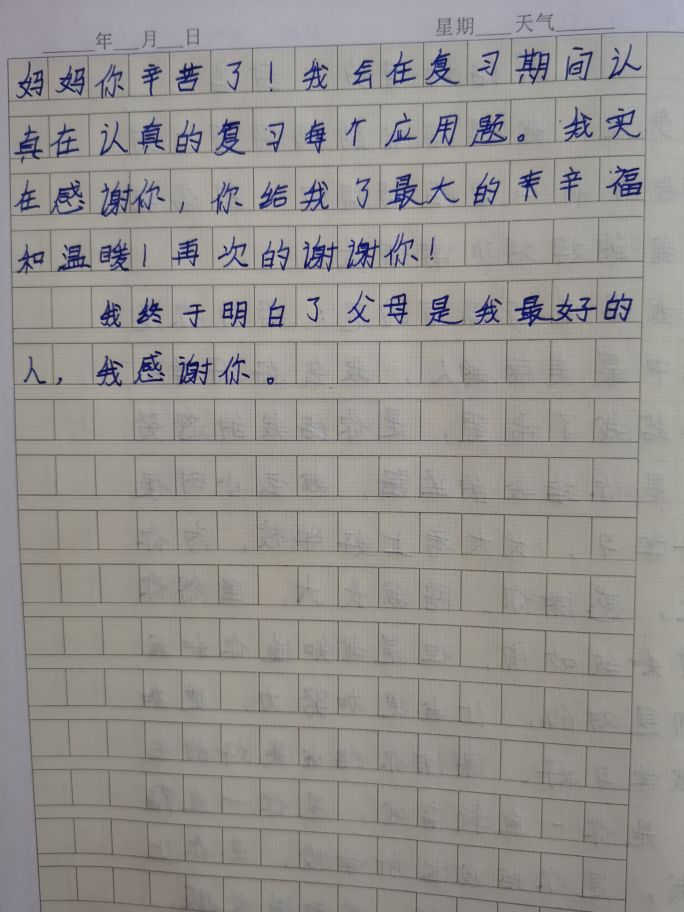 年 月 日 星期 天气
妈妈你辛苦了！我会在复习期间认
真在认真的复习每个应用题。我实
在感谢你，你给我了最大的来辛福
和温暖！再次的谢谢你！
我终于明白了父母是我最好的
人，我感谢你。